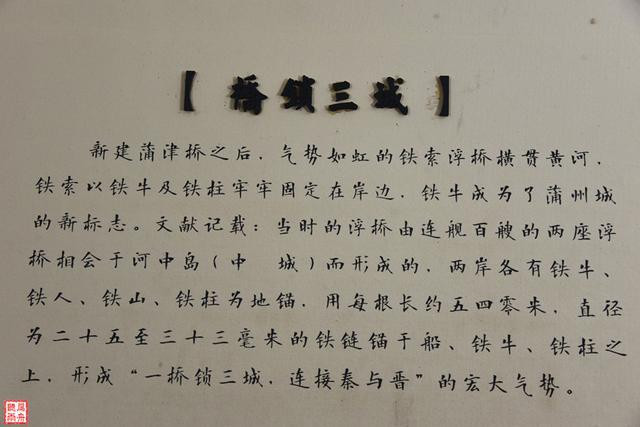 【桥锁三城】
新建蒲津桥之后，气势如虹的铁索浮桥横贯黄河，
铁索以铁牛及铁柱牢牢固定在岸边，铁牛成为了蒲州城
的新标志。文献记载：当时的浮桥由连舰百艘的两座浮
桥相会于河中岛（中 城）而形成的，两岸各有铁牛、
铁人、铁山、铁柱为地锚，用每根长约五四零米，直径
为二十五至三十三毫米的铁链锚于船、铁牛、铁柱之
上，形成“一桥锁三城，连接秦与晋”的宏大气势。